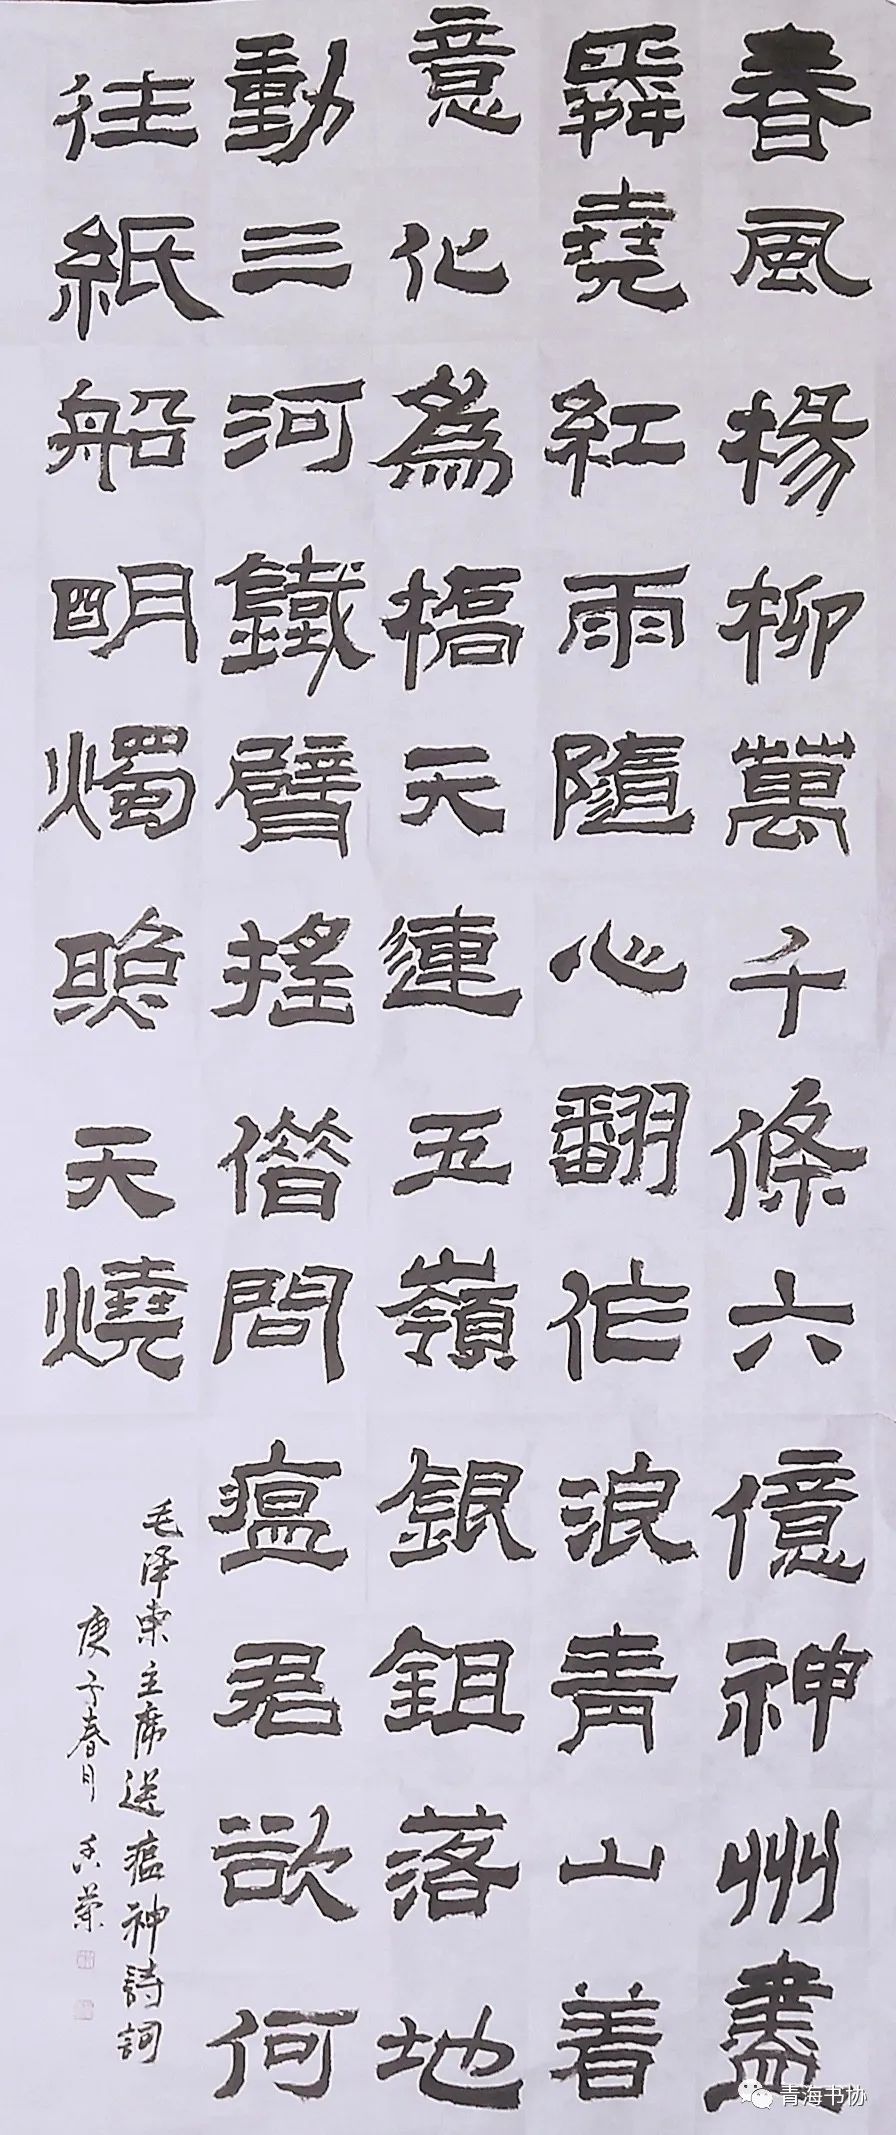 春風楊柳萬千條六億神州盡
舜堯紅雨隨心翻作浪青山着
意化為橋天連五嶺銀鉏落地
動三河鐵臂搖借問瘟君欲何
往紙船明燭照天燒
毛泽東主席送瘟神詩詞
庚子春月
青海书协